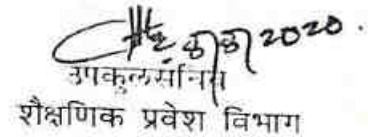 2020.
उपकुलसचिव
शैक्षणिक प्रवेश विभाग